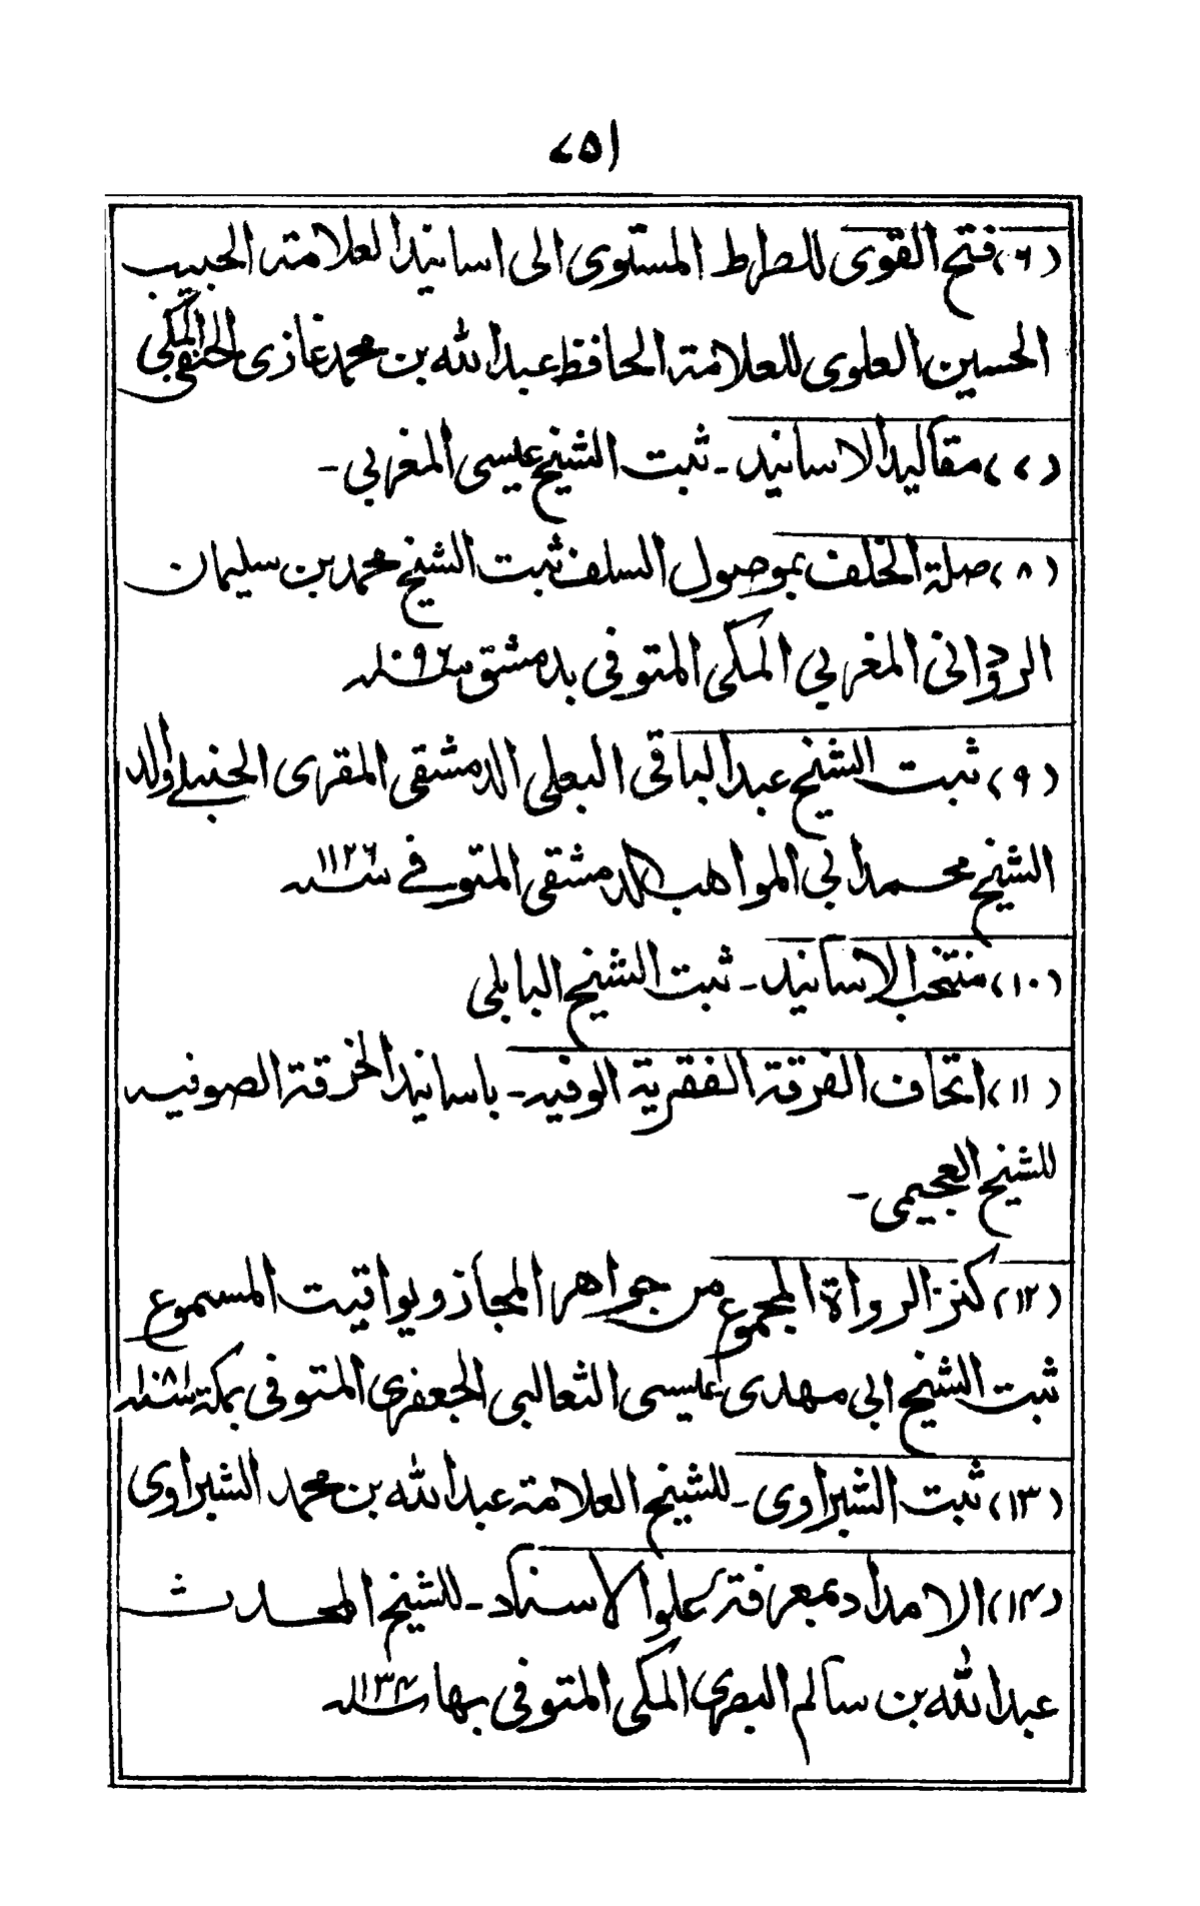 ٧٥١
(٦) فتح القوى للصراط المستوى الى اسانيد العلامة الحبيب
الحسين العلوى للعلامة الحافظ عبد الله بن محمد غازى الحنفى المكي
(٧) مقاليد الاسانيد - ثبت الشيخ عيسى المغربي -
(٨) صلة الخلف بموصول السلف ثبت الشيخ محمد بن سليمان
الردوانى المغربي المكى المتوفى بدمشق سنة ١٠٩٤
(٩) ثبت الشيخ عبد الباقى البعلى الدمشقى المقرى الحنبلے والد
الشيخ محمد ابي المواهب الدمشقى المتوفے سنة ١١٢٦
(١٠) منتخب الاسانيد - ثبت الشيخ البابلى
(١١) اتحاف الفرقة الفقرية الوفيه - باسانيد الخرقة الصوفيه
للشيخ العجيمى -
(١٢) كنز الرواة المجموع من جواهر المجاز ويواقيت المسموع
ثبت الشيخ ابي مهدى عيسى الثعالبى الجعفرى المتوفى بمكة سنة ١٠٨٠
(١٣) ثبت الشبراوى - للشيخ العلامة عبد الله بن محمد الشبراوى
(١۴) الامداد بمعرفة علو الاسناد - للشيخ المحدث
عبد الله بن سالم البصرى المكى المتوفى بها سنة ١١٣۴